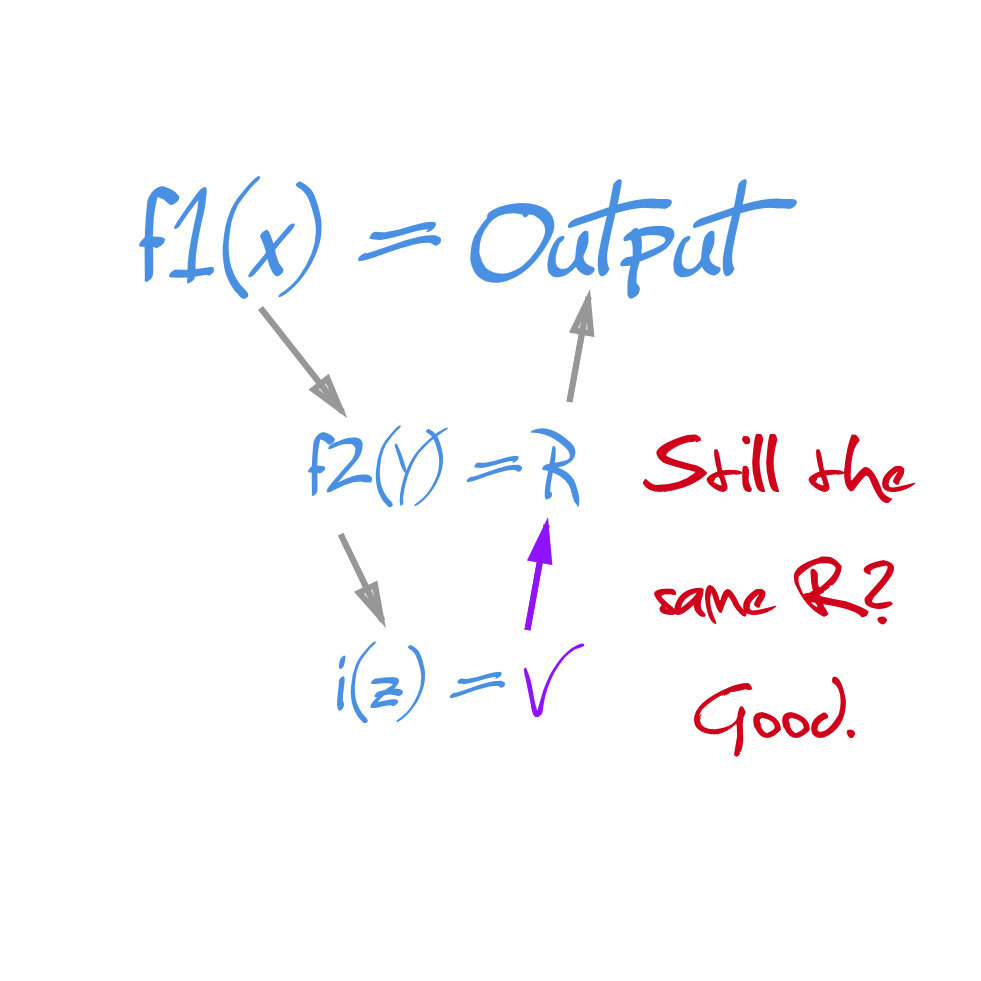 f1(x) = Output
f2(Y) = R
Still the
same R?
i(z) = V
Good.